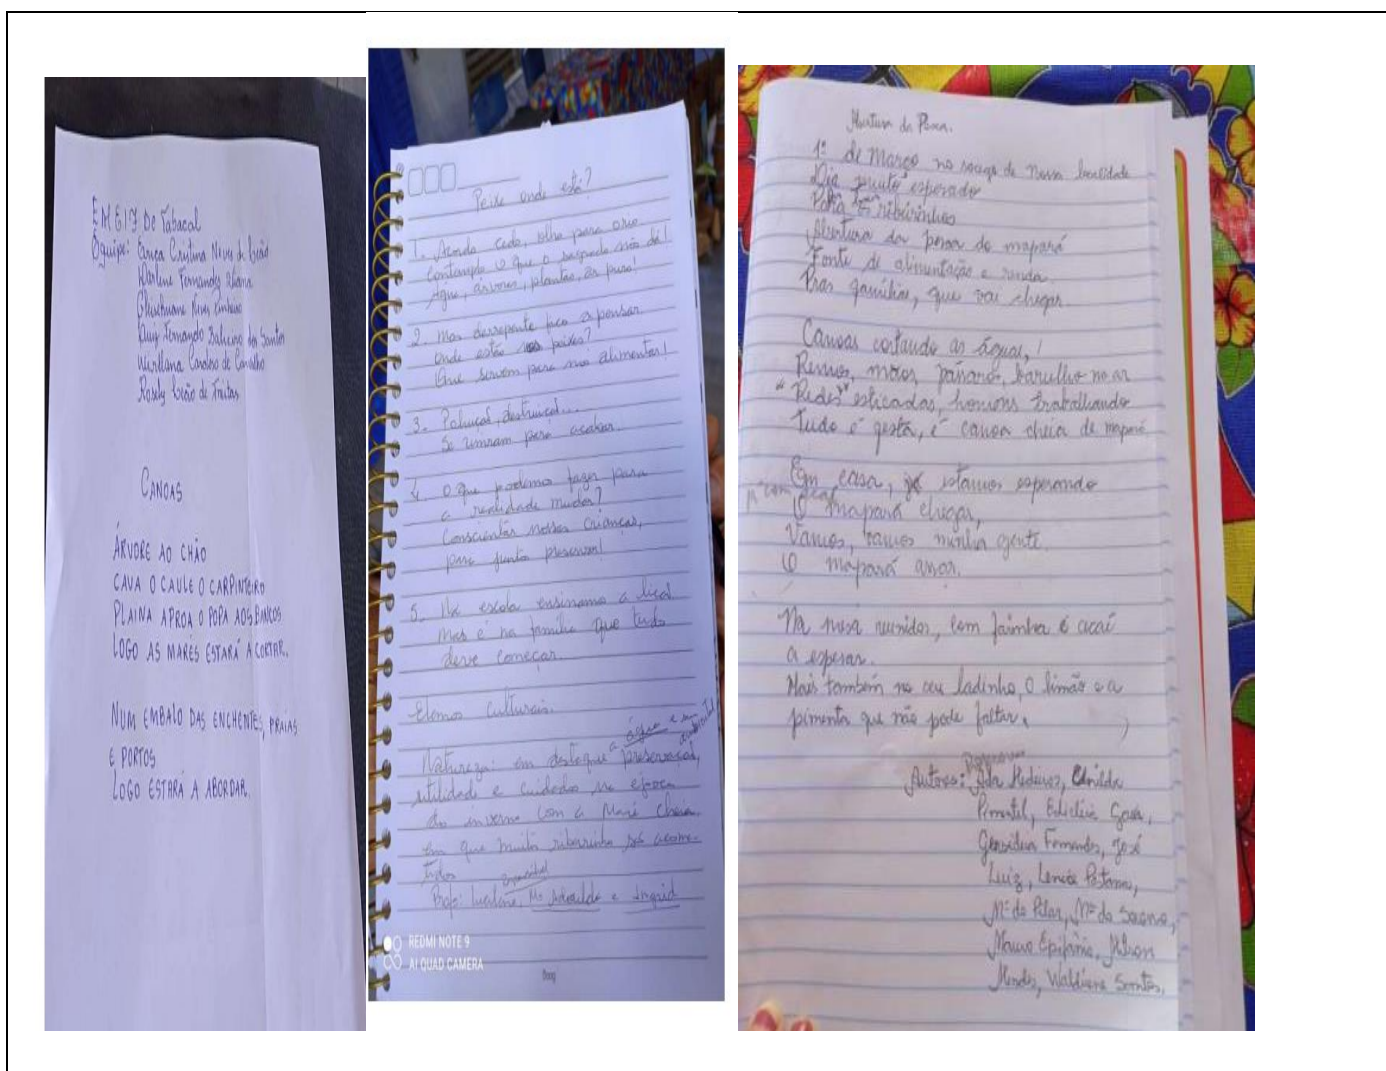 EMEIF De Tabacal
Equipe:
Fernandes
Luiz Fernando dos Santos
Cardoso de Carvalho
Rosely de Freitas
CANOAS
ÁRVORE AO CHÃO
CAVA O CAULE O CARPINTEIRO
PLAINA APROA O POPA AOS BANCOS
LOGO AS MARÉS ESTARÁ A CORTAR.
NUM EMBALO DAS ENCHENTES, PRAIAS
E PORTOS
LOGO ESTARÁ A ABORDAR.
Peixe onde está?
1. Acordo cedo, olho para orio
contemplo o que o
Água, árvores, plantas, ar puro!
2. Mas derrepente fico a pensar
onde estão os peixes?
Que servem para nos alimentar!
3. Poluição, destruição...
Se uniram para acabar.
4. O que podemos fazer para
a realidade mudar?
nossas crianças,
para junto preservar!
5. Na escola ensinamo a lição
mas é na família que tudo
deve começar.
culturais.
Natureza: em destaque a água e sua
preservação, ambiental
utilidade e cuidados na época
do inverno com a Maré cheia
em que muito ribeirinho são acome-
tidos
Profs: Lucilene, Mº e Ingrid
REDMI NOTE 9
AI QUAD CAMERA
Abertura da Pesca.
1º de Março no sossego de nossa localidade
Dia muito esperado
Para ribeirinhos
Abertura da pesca do mapará
Fonte de alimentação e renda.
Pras famílias, que vai chegar.
Canoas cortando as águas,!
Remos, motor, barulho no ar
"Redes" esticadas, homens trabalhando
Tudo é festa, é canoa cheia de mapará
Em casa, já estamos esperando
O mapará chegar,
Vamos, vamos minha gente.
O mapará assar.
Na mesa reunidos, com farinha é açaí
a esperar.
Mais também no seu ladinho, O limão e a
pimenta que não pode faltar.
Autores: Medeiros,
Pimentel, Edicléia
Fernandes, José
Luiz,
Mª do Pilar, Mª do
Mauro Epifânio,
Mendes,